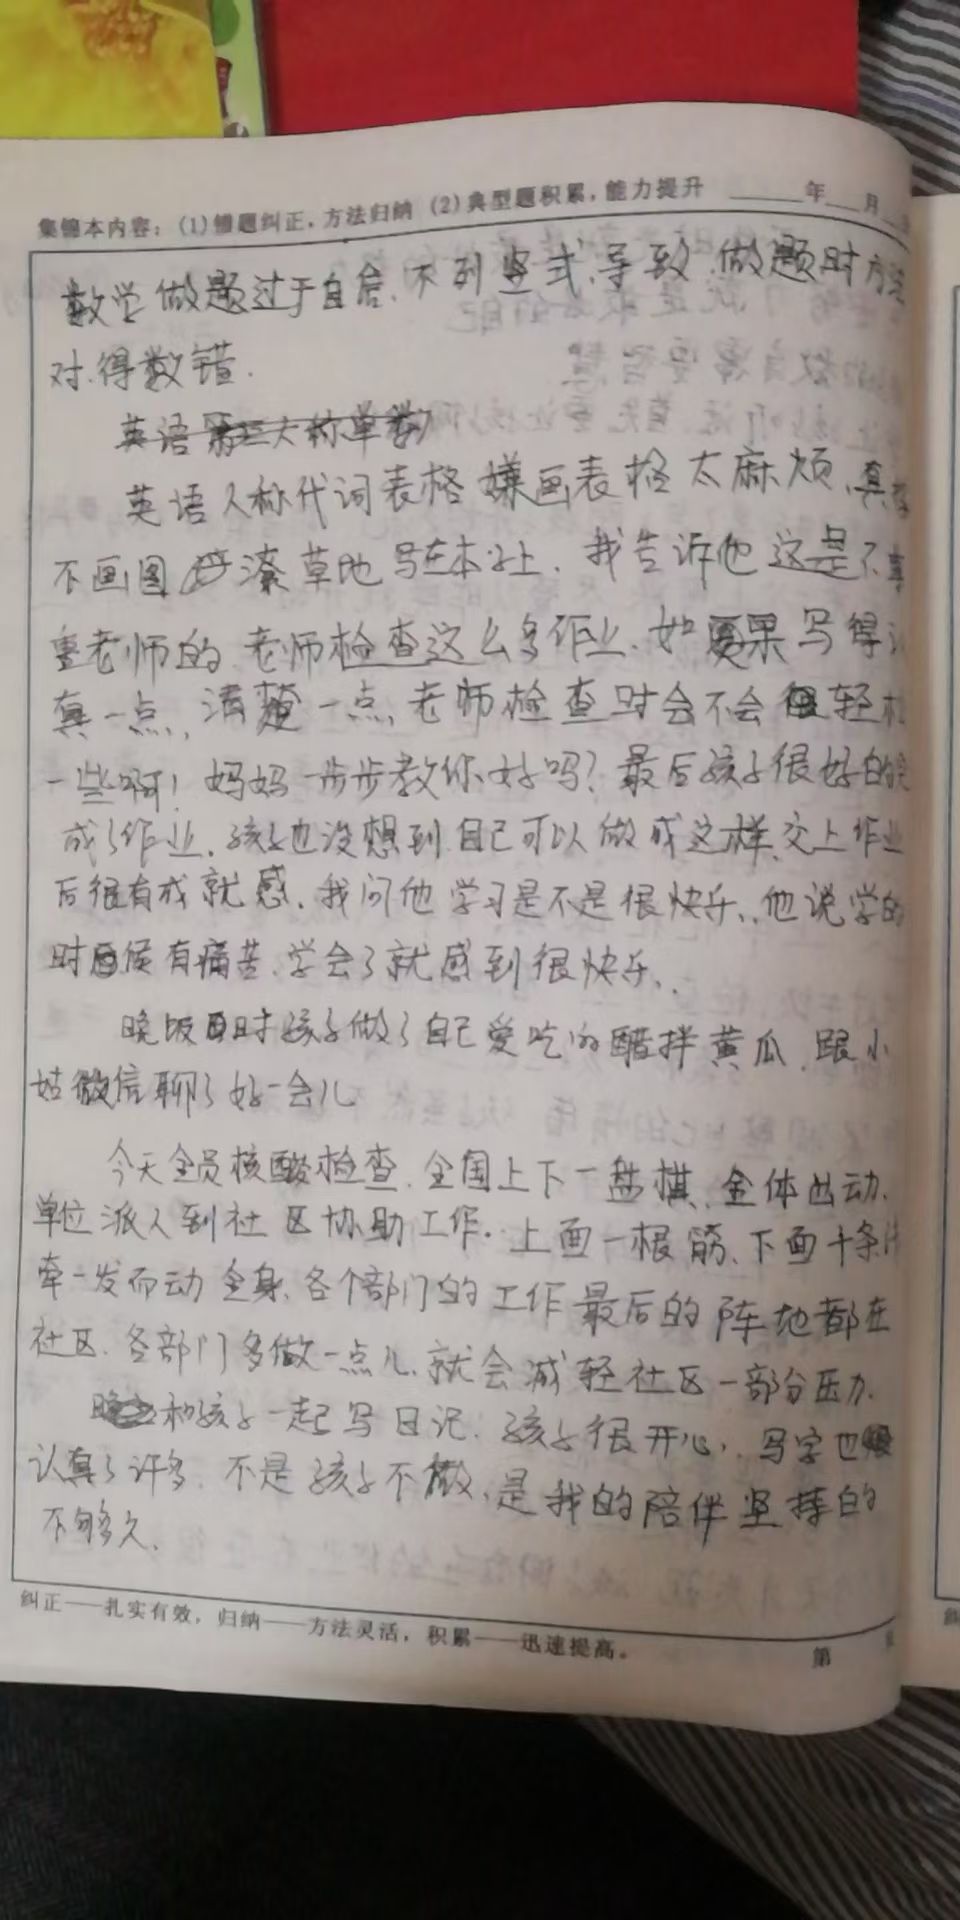 集锦本内容：(1)错题纠正，方法归纳 (2)典型题积累，能力提升 年 月
数学做题过于自信、不列竖式、导致、做题时方法
对、得数错.
英语
英语人称代词表格嫌画表格太麻烦、真
不画图 潦草地写在本子上、我告诉他这是不尊
重老师的、老师检查这么多作业、如果写得
真一点，清楚一点，老师检查时会不会轻松
一些啊！妈妈一步步教你好吗？最后孩子很好的完
成了作业、孩子也没想到自己可以做成这样、交上作业
后很有成就感、我问他学习是不是很快乐、他说学的
时候有痛苦、学会了就感到很快乐、
晚饭时孩子做了自己爱吃的醋拌黄瓜、跟小
姑微信聊了好一会儿
今天全员核酸检查、全国上下一盘棋、全体出动、
单位派人到社区协助工作、上面一根筋、下面千条
牵一发而动全身、各个部门的工作最后的阵地都在
社区、各部门多做一点儿、就会减轻社区一部分压力、
和孩子一起写日记、孩子很开心、写字也
认真了许多、不是孩子不做、是我的陪伴坚持的
不够久、
纠正——扎实有效，归纳——方法灵活，积累——迅速提高。
第